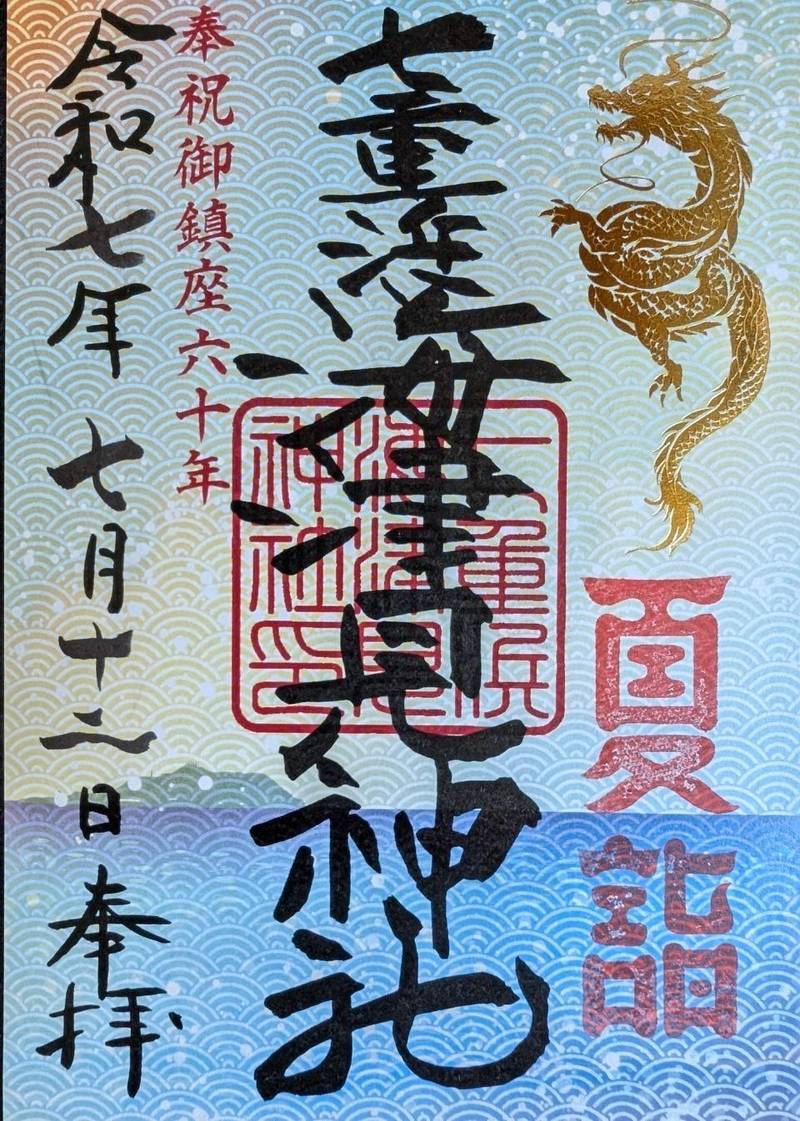 夏詣
七重浜海津見神社
七重浜
海津見
神社印
奉祝御鎮座六十年
令和七年 七月十二日 奉拝